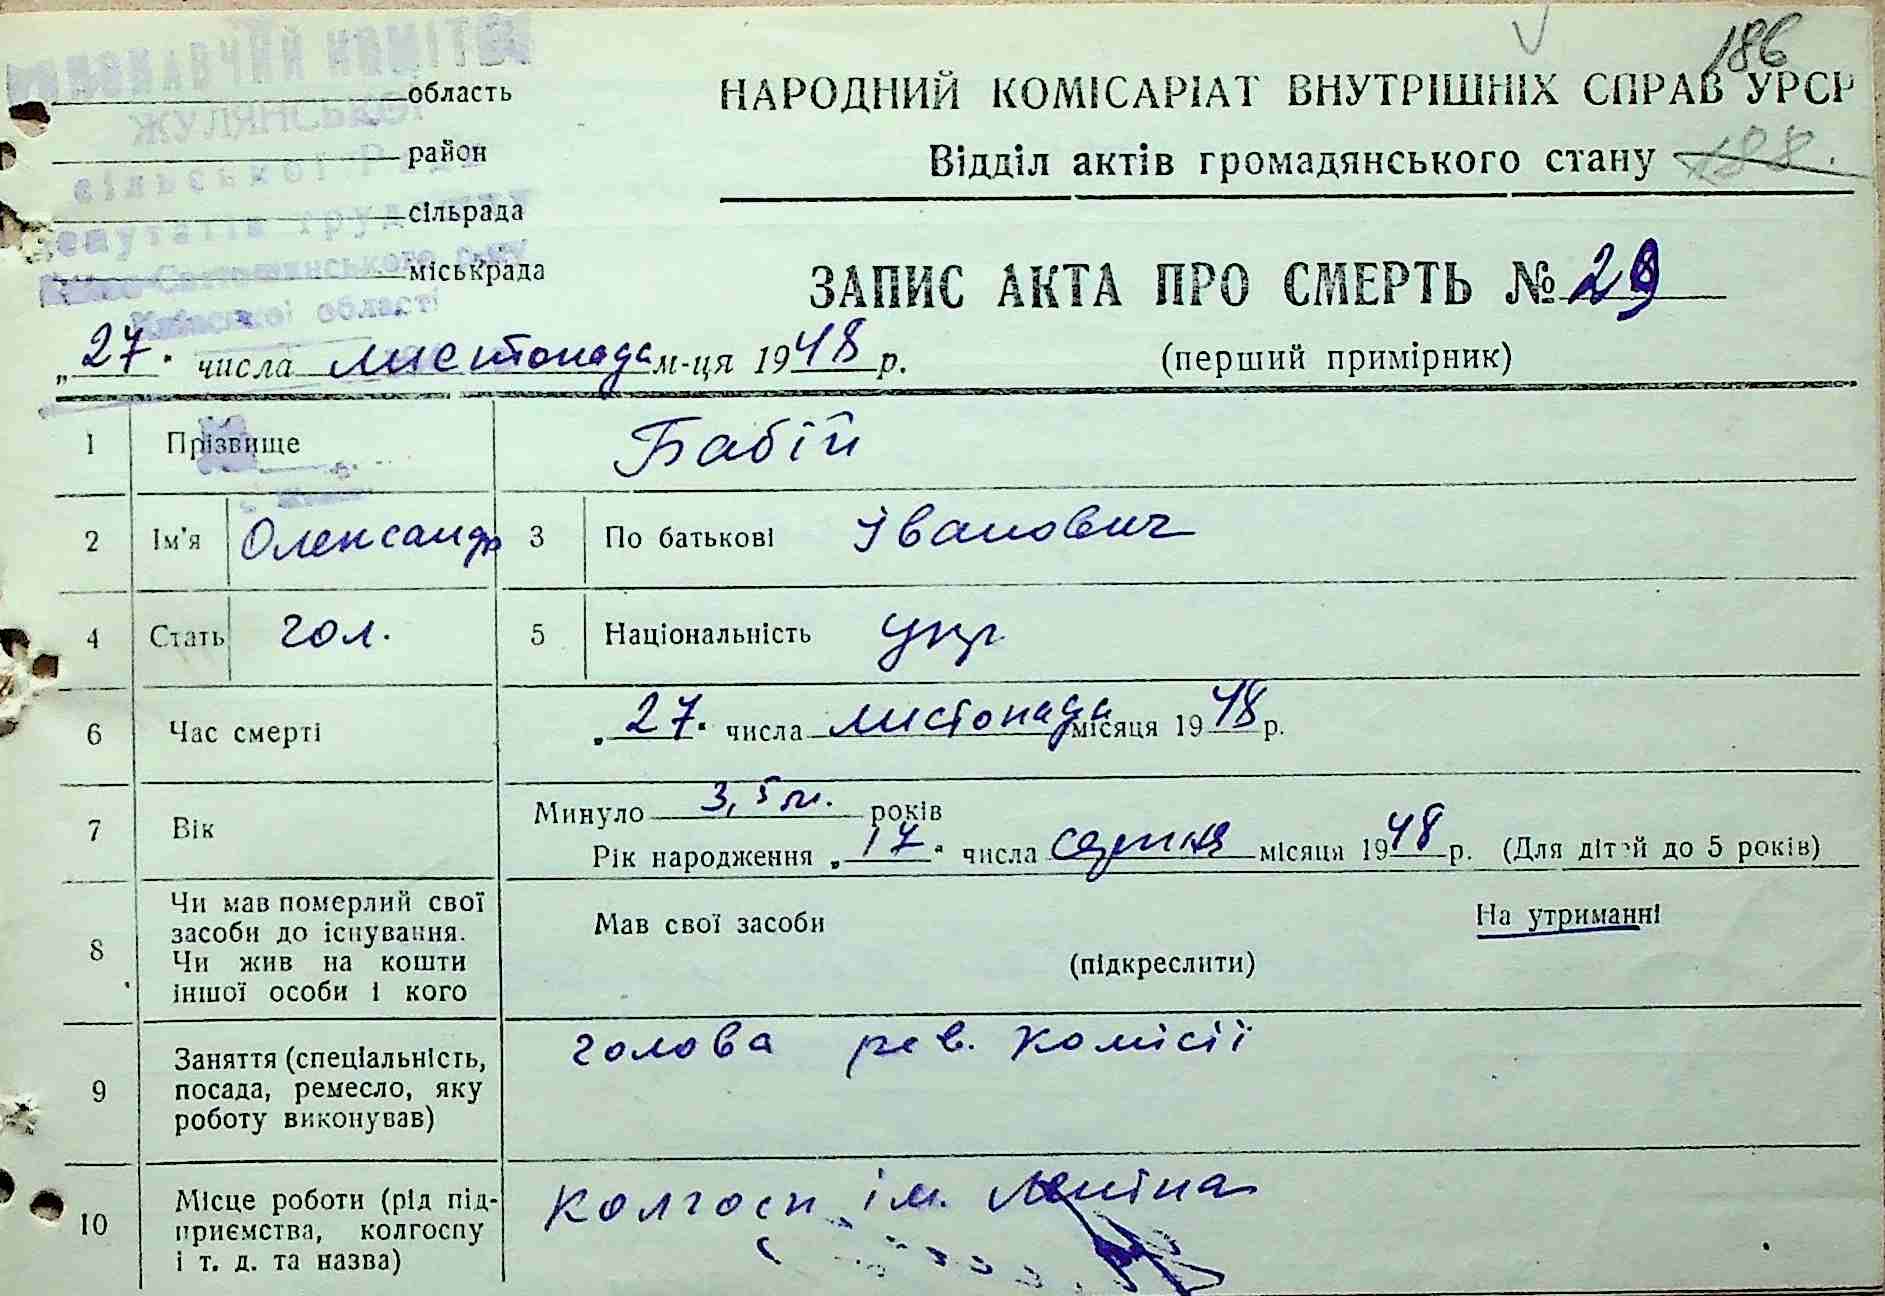 ВИКОНАВЧИЙ КОМІТЕТ
ЖУЛЯНСЬКОЇ
сільської Ради
депутатів трудящих
Києво-Святошинського р-ну
Київської області
область
район
сільрада
міськрада
186
НАРОДНИЙ КОМІСАРІАТ ВНУТРІШНІХ СПРАВ УРСР
Відділ актів громадянського стану 188.
ЗАПИС АКТА ПРО СМЕРТЬ № 29
(перший примірник)
„27" числа листопада м-ця 1948 р.
1 Прізвище Бабій
2 Ім'я Олександр 3 По батькові Іванович
4 Стать чол. 5 Національність укр
6 Час смерті „27" числа листопада місяця 1948 р.
7 Вік Минуло 3,5 м. років
Рік народження „17" числа серпня місяця 1948 р. (Для дітей до 5 років)
8 Чи мав померлий свої засоби до існування. Чи жив на кошти іншої особи і кого
Мав свої засоби На утриманні
(підкреслити)
9 Заняття (спеціальність, посада, ремесло, яку роботу виконував)
голова рев. комісії
10 Місце роботи (рід підприємства, колгоспу і т. д. та назва)
колгосп ім. Леніна